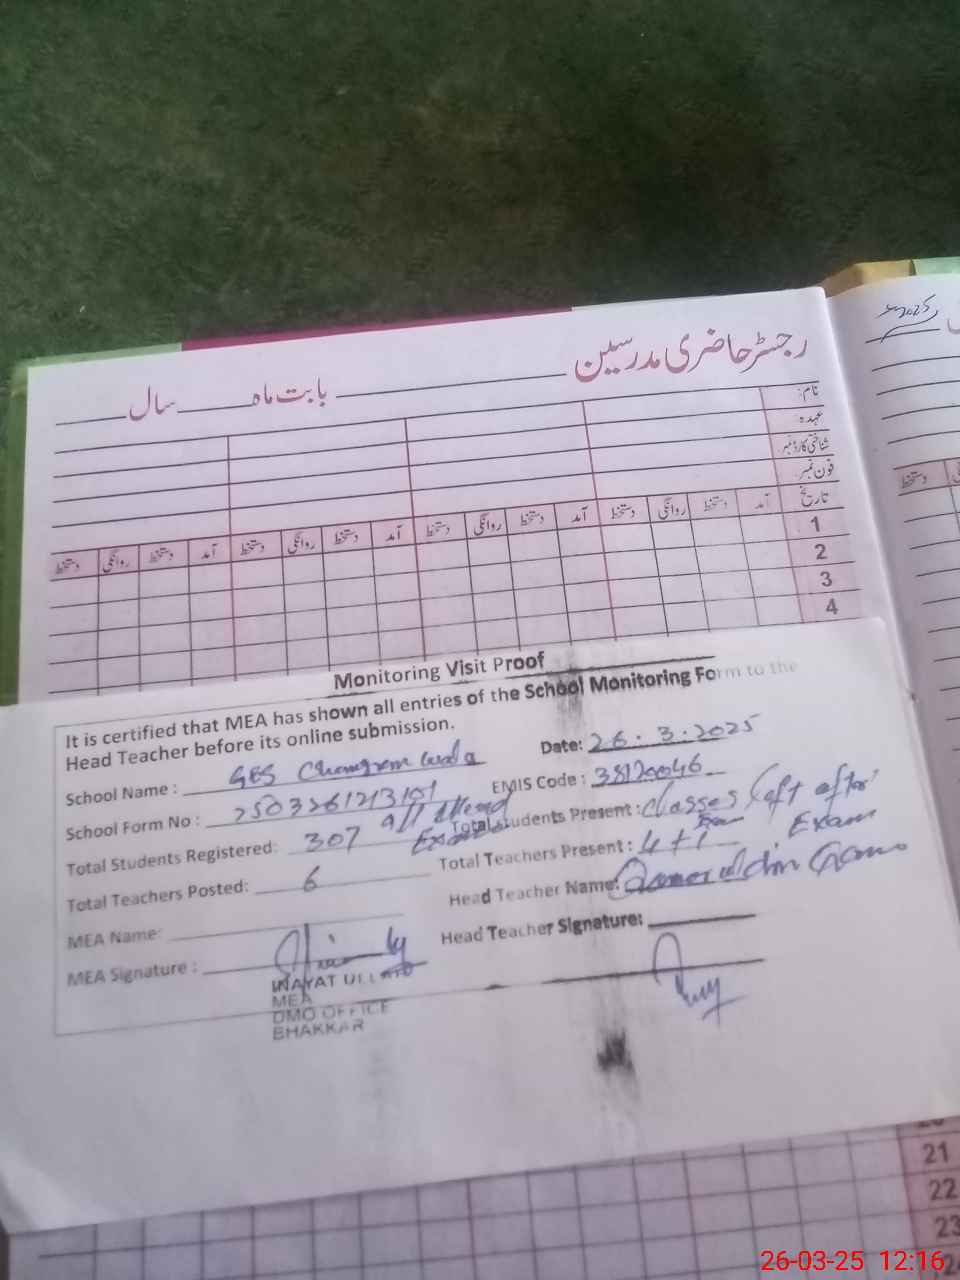 2025
رجسٹر حاضری مدرسین ______ بابت ماہ ______ سال ______
نام:
عہدہ
شناختی کارڈ نمبر
فون نمبر
تاریخ آمد دستخط روانگی دستخط آمد دستخط روانگی دستخط آمد دستخط روانگی دستخط آمد دستخط روانگی دستخط
دستخط
1
2
3
4
Monitoring Visit Proof
It is certified that MEA has shown all entries of the School Monitoring Form to the
Head Teacher before its online submission.
Date: 26.3.2025
School Name : GES
EMIS Code : 38120046
School Form No : 2503261213101
Total Students Registered: 307 All Attend Exam
Total Students Present : classes left after Exam
Total Teachers Posted: 6
Total Teachers Present : 4+1
MEA Name:
Head Teacher Name:
MEA Signature :
Head Teacher Signature:
INAYAT ULLAH
MEA
DMO OFFICE
BHAKKAR
20
21
22
23
24
26-03-25 12:16